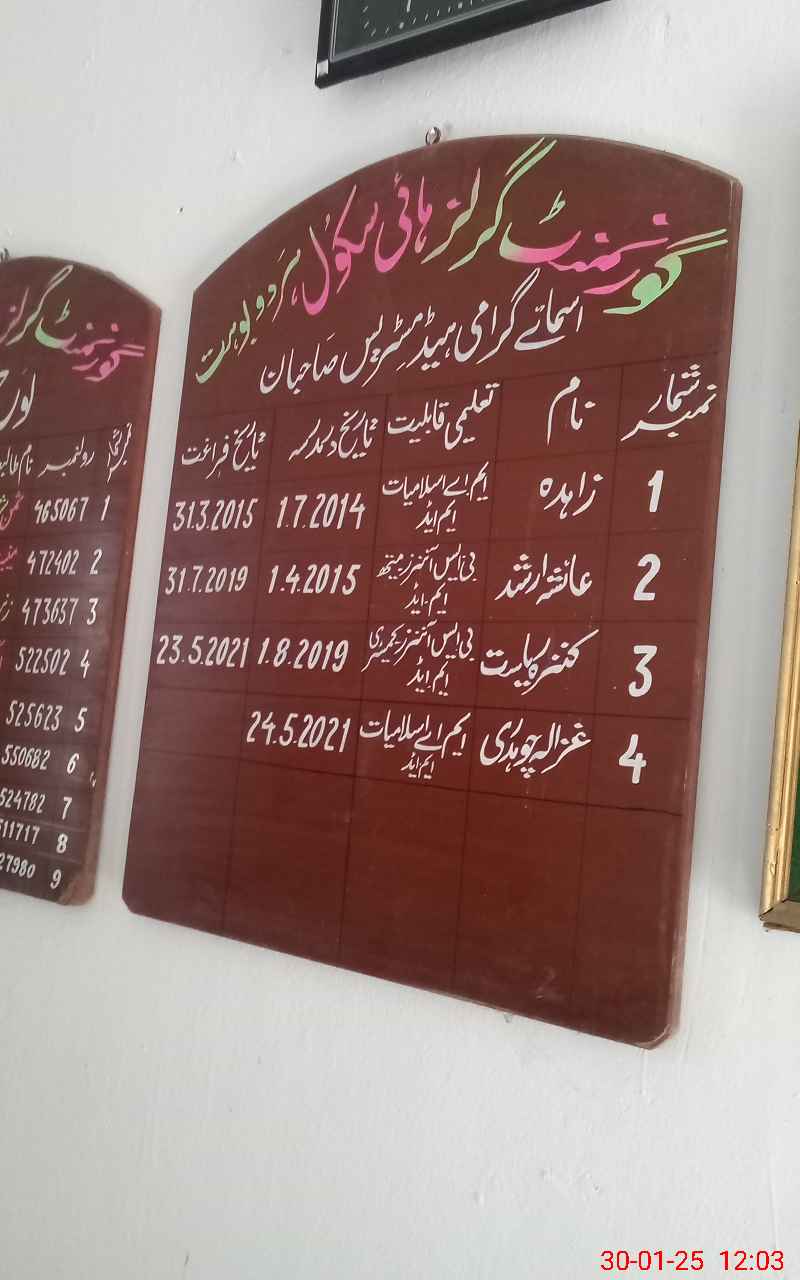 گورنمنٹ گرلز ہائی سکول ہردو بوہرت
اسمائے گرامی ہیڈمسٹریس صاحبان
نمبر شمار نام تعلیمی قابلیت تاریخ فراغت
1 زاہدہ ایم اے اسلامیات ایم ایڈ 1.7.2014 31.3.2015
2 عائشہ ارشد بی ایس آنرز میتھ ایم۔ایڈ 1.4.2015 31.7.2019
3 کنزہ ریاست بی ایس آنرز کیمسٹری ایم ایڈ 1.8.2019 23.5.2021
4 غزالہ چوہدری ایم اے اسلامیات ایم ایڈ 24.5.2021
گورنمنٹ گرلز
رولنمبر
1 465067
2 472402
3 473637
4 522502
5 525623
6 550682
7 524782
8
9
30-01-25 12:03